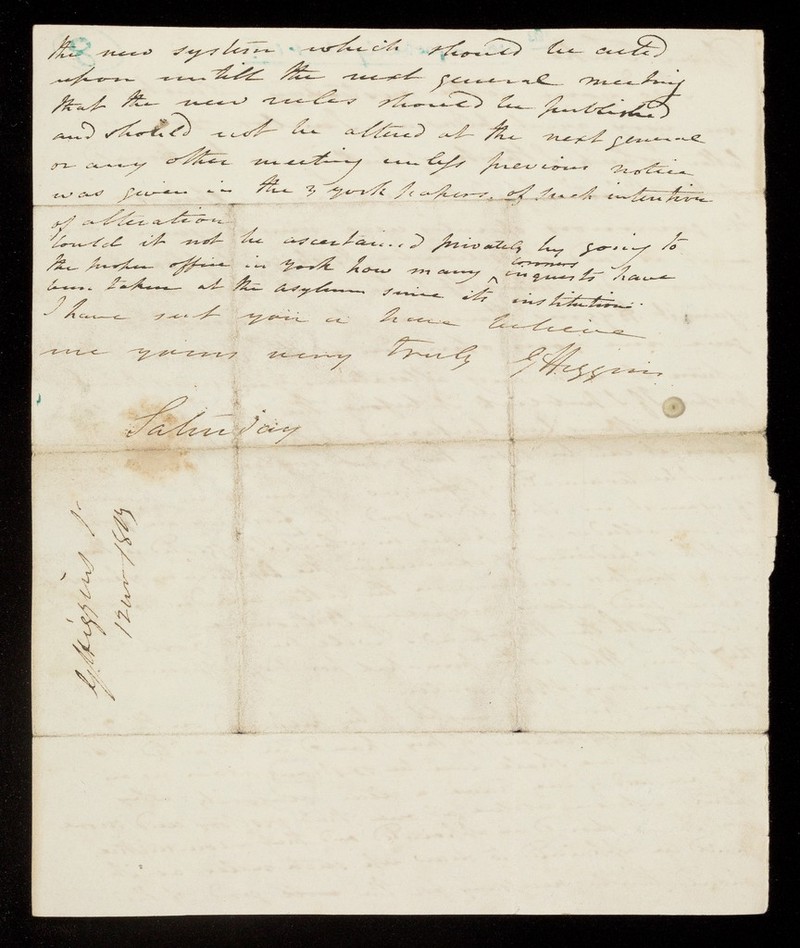 the new system which should be acted
upon untill the next general meeting
that the new rules should be published
and should not be altered at the next general
or any other meeting unless previous notice
was given in the 3 york papers, of such intention
of alteration
Could it not be ascertained privately by going to
the proper office in york how many coroners inquests have
been taken at the asylum since its institution.
I have sent you a hare believe
me yours very truly G Higgins
Saturday
G. Higgins
1813